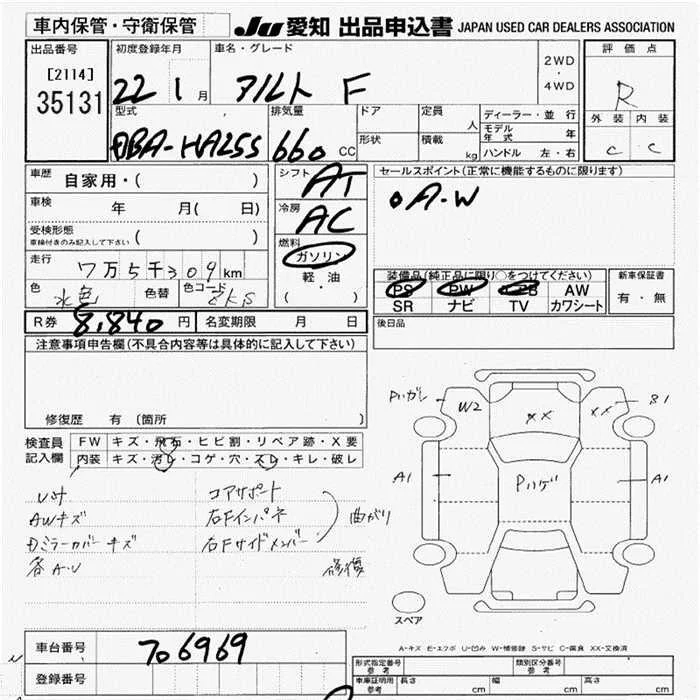 車内保管・守衛保管 JU 愛知 出品申込書 JAPAN USED CAR DEALERS ASSOCIATION
出品番号 初度登録年月 車名・グレード 2WD ・ 4WD 評価点
[2114] 35131 22 1月 アルト F R
型式 排気量 ドア 定員 人 ディーラー・並行 外装 内装
DBA-HA25S 660 CC 形状 積載 kg モデル年式 年 C C
ハンドル 左・右
車歴 自家用・( ) シフト AT セールスポイント(正常に機能するものに限ります)
車検 年 月( 日) 冷房 AC A・W
受検形態 車検付きのみ記入して下さい ( ) 燃料 ガソリン
走行 7万5千309km 軽・油 装備品(純正品に限り○をつけてください) 新車保証書
色 水色 色替 色コード ( ) PS PW AW 有・無
SR ナビ TV カワシート
R券 8,840円 名変期限 月 日 後日品
注意事項申告欄(不具合内容等は具体的に記入して下さい)
修復歴 有 (箇所 )
検査員 FW キズ・飛石・ヒビ割・リペア跡・X要
記入欄 内装 キズ・汚レ・コゲ・穴・スレ・キレ・破レ
コアサポート
AWキズ 右Fインパネ 曲がり
ミラーカバーキズ 右Fサイドメンバー
各A・U 修復
Pハガレ W2 XX XX S1
A1 Pハゲ A1
スペア
A-キズ E-エクボ U-凹み W-補修跡 S-サビ C-腐食 XX-交換済
車台番号 706969
登録番号
形式指定番号 参考 類別区分番号 参考
車庫証明用 参考 長さ cm 幅 cm 高さ cm